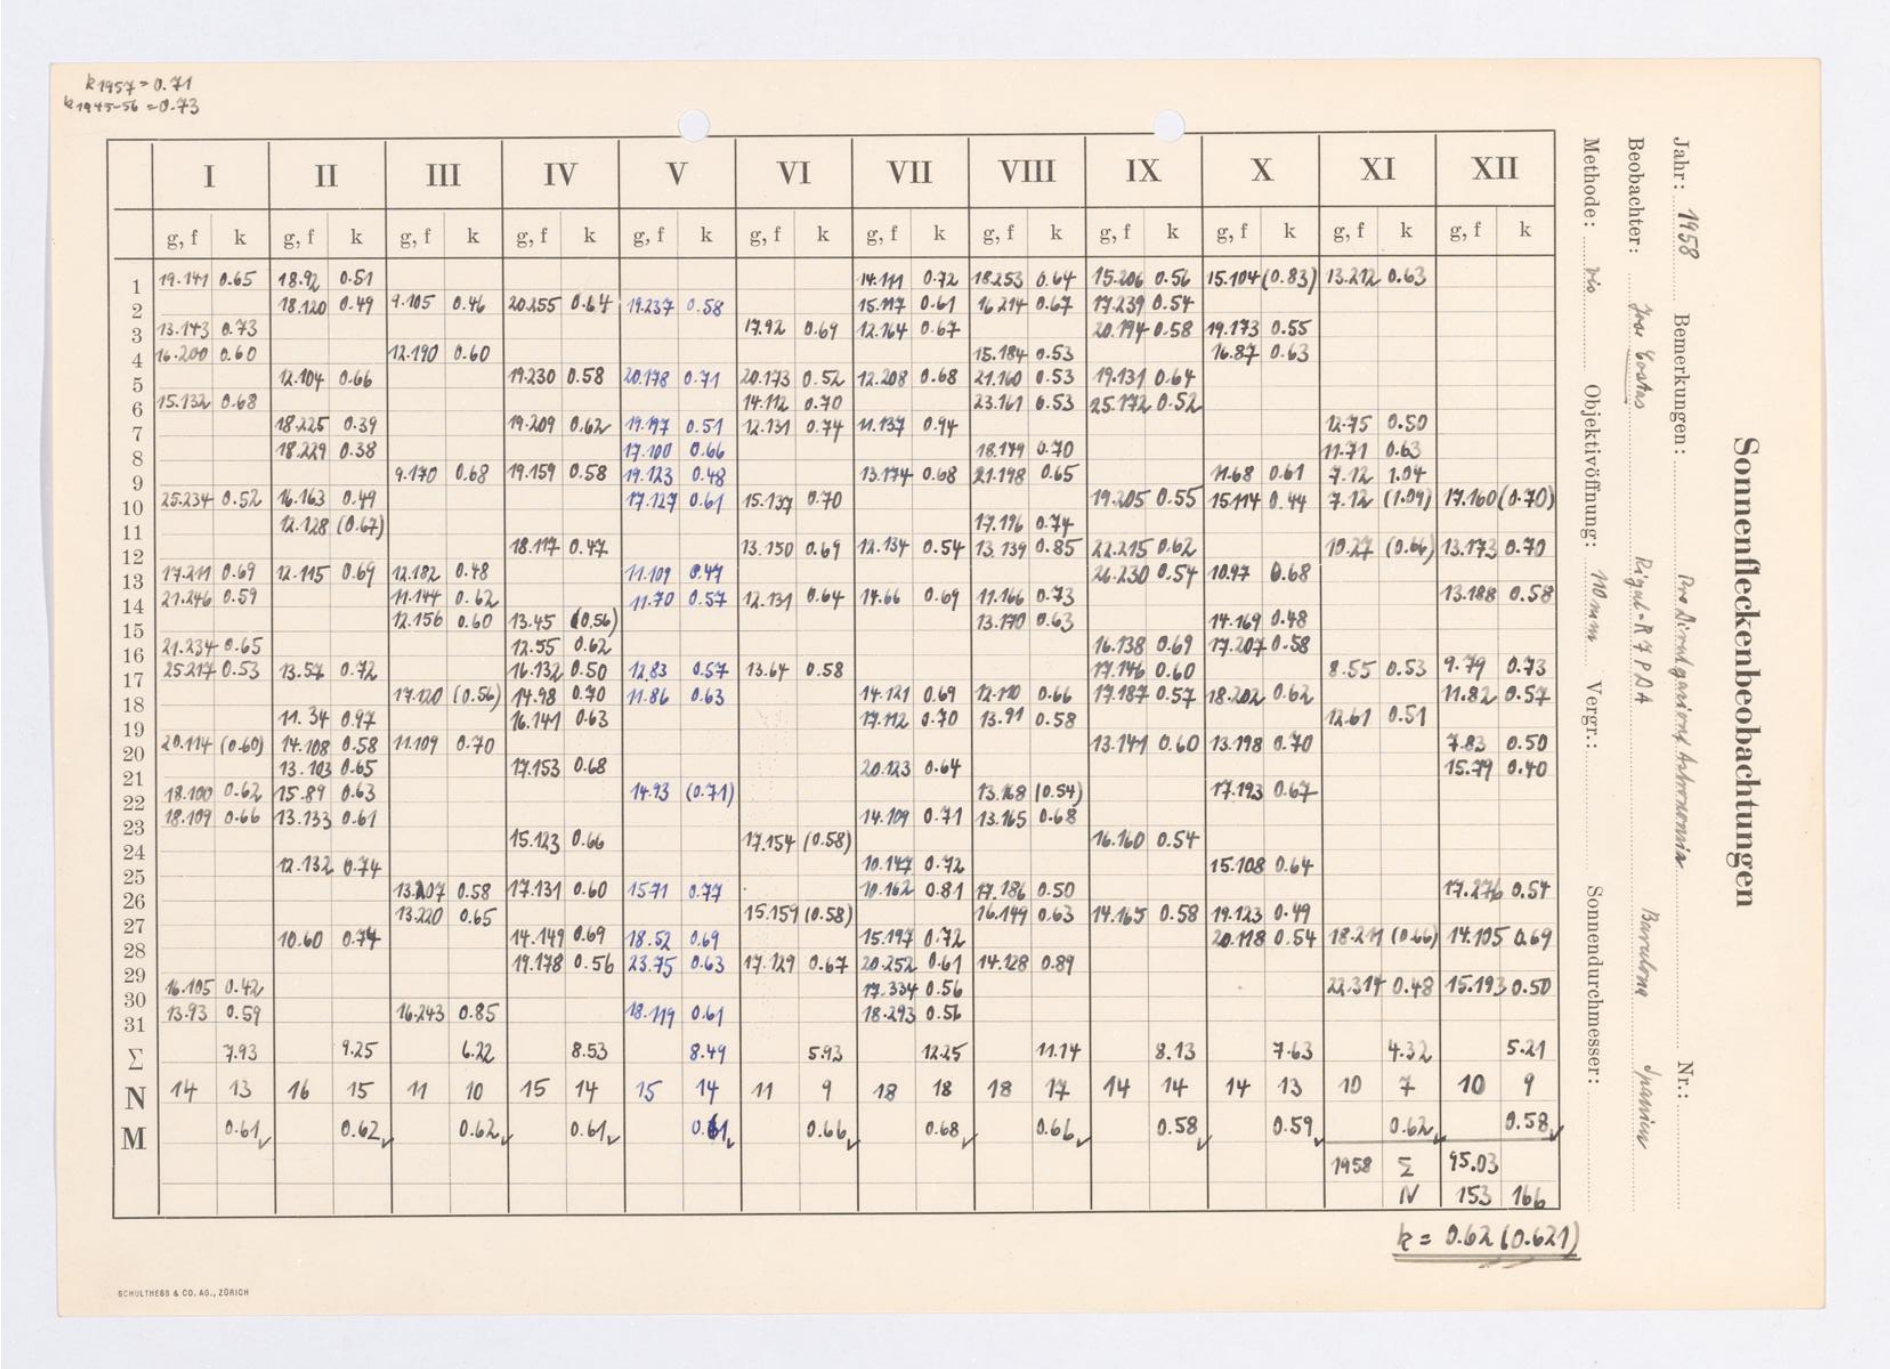 k 1957 = 0.71
k 1945-56 = 0.73
I II III IV V VI VII VIII IX X XI XII
g, f k g, f k g, f k g, f k g, f k g, f k g, f k g, f k g, f k g, f k g, f k g, f k
1 19.141 0.65 18.92 0.51 14.111 0.72 18.253 0.64 15.206 0.56 15.104 (0.83) 13.212 0.63
2 18.120 0.49 9.105 0.46 20.255 0.64 19.237 0.58 15.117 0.61 16.214 0.67 17.239 0.54
3 13.143 0.73 17.92 0.69 12.164 0.67 20.194 0.58 19.173 0.55
4 16.200 0.60 12.190 0.60 15.184 0.53 16.87 0.63
5 12.104 0.66 19.230 0.58 20.178 0.71 20.173 0.52 12.208 0.68 21.160 0.53 19.131 0.64
6 15.132 0.68 14.112 0.70 23.161 0.53 25.172 0.52
7 18.225 0.39 19.209 0.62 19.197 0.51 12.131 0.74 11.137 0.94 12.75 0.50
8 18.229 0.38 17.100 0.66 18.179 0.70 11.71 0.63
9 9.170 0.68 19.159 0.58 19.123 0.48 13.174 0.68 21.198 0.65 11.68 0.61 7.12 1.04
10 25.234 0.52 16.163 0.49 17.127 0.61 15.137 0.70 19.205 0.55 15.114 0.44 7.12 (1.09) 17.160 (0.70)
11 12.128 (0.67) 17.196 0.74
12 18.117 0.47 13.150 0.69 12.134 0.54 13.139 0.85 22.215 0.62 10.27 (0.66) 13.173 0.70
13 17.211 0.69 12.115 0.69 12.182 0.48 11.109 0.47 26.230 0.54 10.97 0.68
14 21.246 0.59 11.144 0.62 11.70 0.57 12.131 0.64 14.66 0.69 11.166 0.73 13.188 0.58
15 12.156 0.60 13.45 (0.56) 13.170 0.63 14.169 0.48
16 21.234 0.65 12.55 0.62 16.138 0.69 17.207 0.58
17 25.217 0.53 13.57 0.72 16.132 0.50 12.83 0.57 13.64 0.58 17.146 0.60 8.55 0.53 9.79 0.73
18 17.120 (0.56) 14.98 0.70 11.86 0.63 14.121 0.69 12.110 0.66 17.187 0.57 18.202 0.62 11.82 0.57
19 11.34 0.97 16.141 0.63 17.112 0.70 13.91 0.58 12.61 0.51
20 20.114 (0.60) 14.108 0.58 11.109 0.70 13.141 0.60 13.198 0.70 7.83 0.50
21 13.103 0.65 17.153 0.68 20.123 0.64 15.79 0.40
22 18.100 0.62 15.89 0.63 14.93 (0.71) 13.168 (0.54) 17.193 0.67
23 18.109 0.66 13.133 0.61 14.109 0.71 13.165 0.68
24 15.123 0.66 17.154 (0.58) 16.160 0.54
25 12.132 0.74 10.147 0.72 15.108 0.64
26 13.207 0.58 17.131 0.60 15.71 0.77 10.162 0.81 17.186 0.50 17.276 0.54
27 13.220 0.65 15.159 (0.58) 16.149 0.63 14.165 0.58 19.123 0.49
28 10.60 0.74 14.149 0.69 18.52 0.69 15.197 0.72 20.118 0.54 18.211 (0.66) 14.105 0.69
29 19.178 0.56 23.75 0.63 17.129 0.67 20.252 0.61 14.128 0.89
30 16.105 0.42 17.334 0.56 22.314 0.48 15.193 0.50
31 13.93 0.59 16.243 0.85 18.119 0.61 18.293 0.56
Σ 7.93 9.25 6.22 8.53 8.49 5.93 12.25 11.14 8.13 7.63 4.32 5.21
N 14 13 16 15 11 10 15 14 15 14 11 9 18 18 18 17 14 14 14 13 10 7 10 9
M 0.61 0.62 0.62 0.61 0.61 0.66 0.68 0.66 0.58 0.59 0.62 0.58
1958 Σ 95.03
N 153 166
k = 0.62 (0.621)
SCHULTHESS & CO. AG., ZÜRICH
Sonnenfleckenbeobachtungen
Jahr: 1958 Bemerkungen: Nr.:
Beobachter: Barcelona Spanien
Methode: vis Objektivöffnung: 110 mm Vergr.: Sonnendurchmesser: